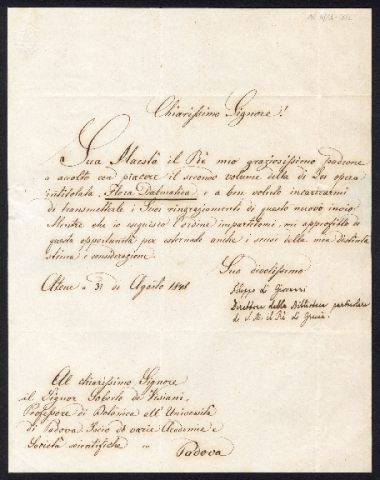 Chiarissimo Signore!
Sua Maestà il Rè mio graziosissimo padrone
a accolto con piacere il secondo volume della di Lei opera
intitolata, Flora Dalmatica, e a ben voluto incaricarmi
di transmetterle i Suoi ringraziamenti di questo nuovo invio
Mentre che io eseguisco l'ordine impartitomi, mi approfitto di
questa opportunità per esternarle anche i sensi della mia distinta
stima e considerazione.
Atene a 31 de Agosto 1848
Suo divotissimo
Filippo di Giovanni
Direttore della Biblioteca particolare
di S. M. il Rè di Grecia.
Al chiarissimo Signore
il Signor Roberto de Visiani,
Professore di Botanica all'Università
di Padova Socio di varie Academie e
Società scientifiche in
Padova